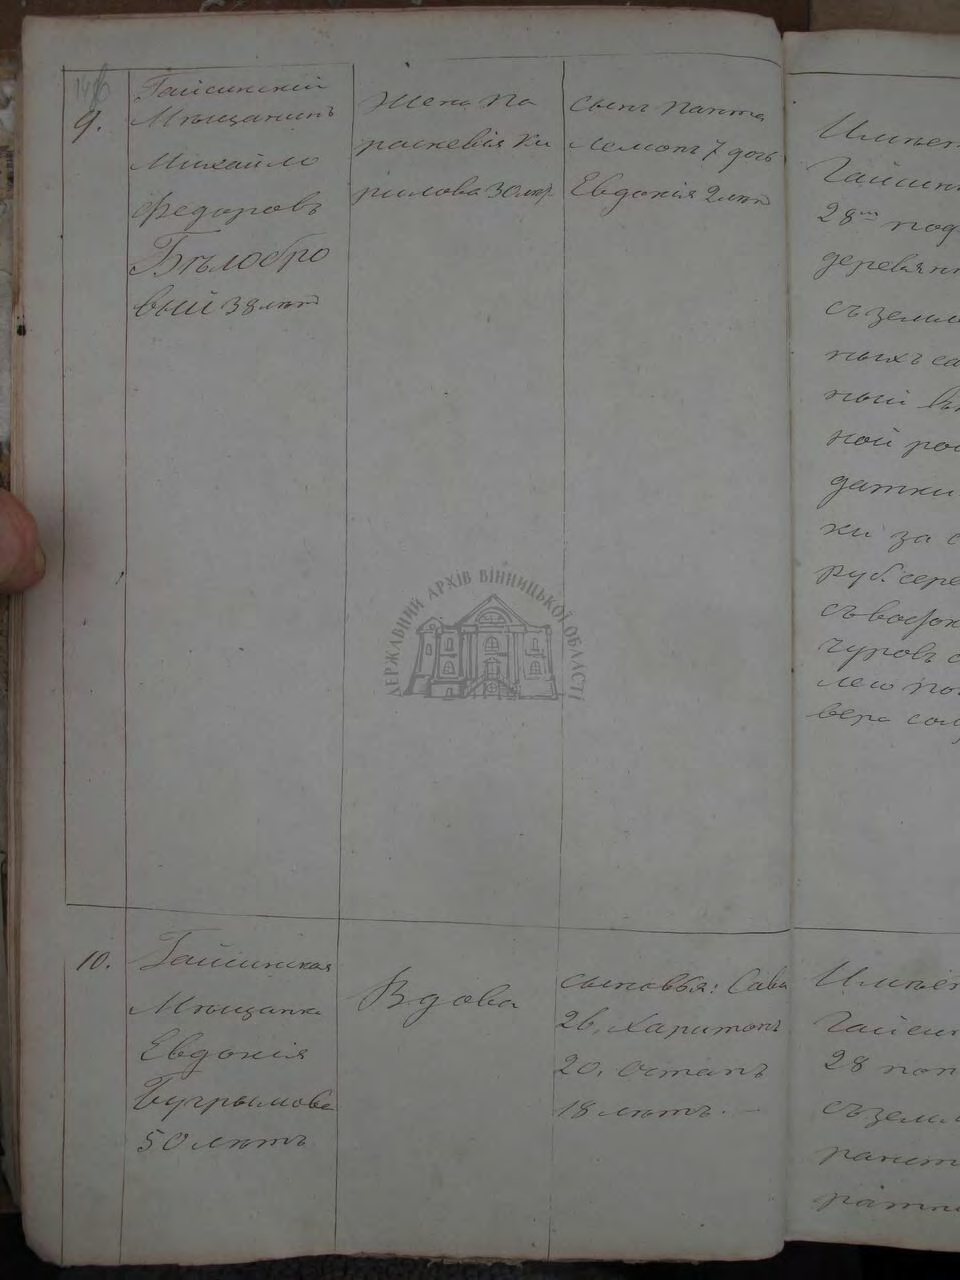 9.
Гайсинскій
Мѣщанинъ
Михайло
Федоровъ
Бѣлобро
вый 38 лѣт
Жена Па
раскевія Ки
рилова 30 лѣт.
сынъ Панте
лемонъ 7 дочь
Евдокія 2 лѣт
Имѣет
Гайсин
28ᵐ под
деревян
съ земле
ныхъ са
ный
ной
датки
ки за с
руб. сере
чуровъ с
лею по
10.
Гайсинская
Мѣщанка
Евдокія
Бугрымова
50 лѣтъ
Вдова
сыновья: Сава
26, Харитонъ
20, Останъ
18 лѣтъ.
Имѣет
Гайсин
28 поп
съ земле
ДЕРЖАВНИЙ АРХІВ ВІННИЦЬКОЇ ОБЛАСТІ